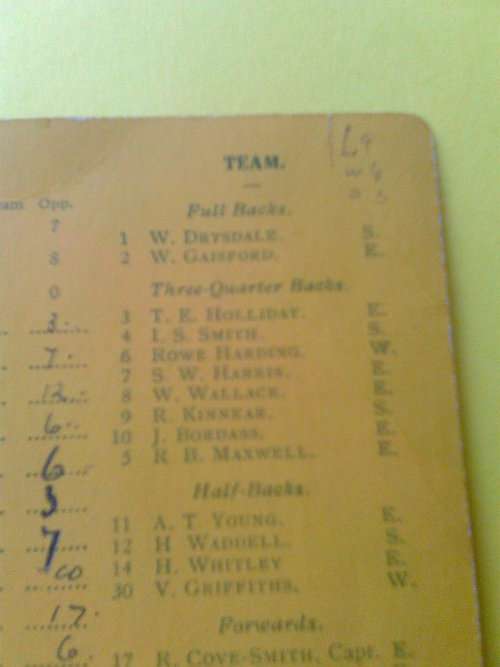 TEAM.
L 9
W 6
D 3
am Opp.
Full Backs.
7
1 W. DRYSDALE. S.
8
2 W. GAISFORD. E.
Three-Quarter Backs.
0
3 T. E. HOLLIDAY. E.
3
4 I. S. SMITH S.
6 ROWE HARDING. W.
7
7 S. W. HARRIS. E.
8 W. WALLACE. E.
9 R. KINNEAR. S.
6
10 J. BORDASS. E.
5 R. B. MAXWELL. E.
6
Half-Backs.
11 A. T. YOUNG. E.
12 H WADDELL. S.
7
14 H. WHITLEY E.
30 V. GRIFFITHS. W.
17
Forwards.
6
17 R. COVE-SMITH, Capt. E.